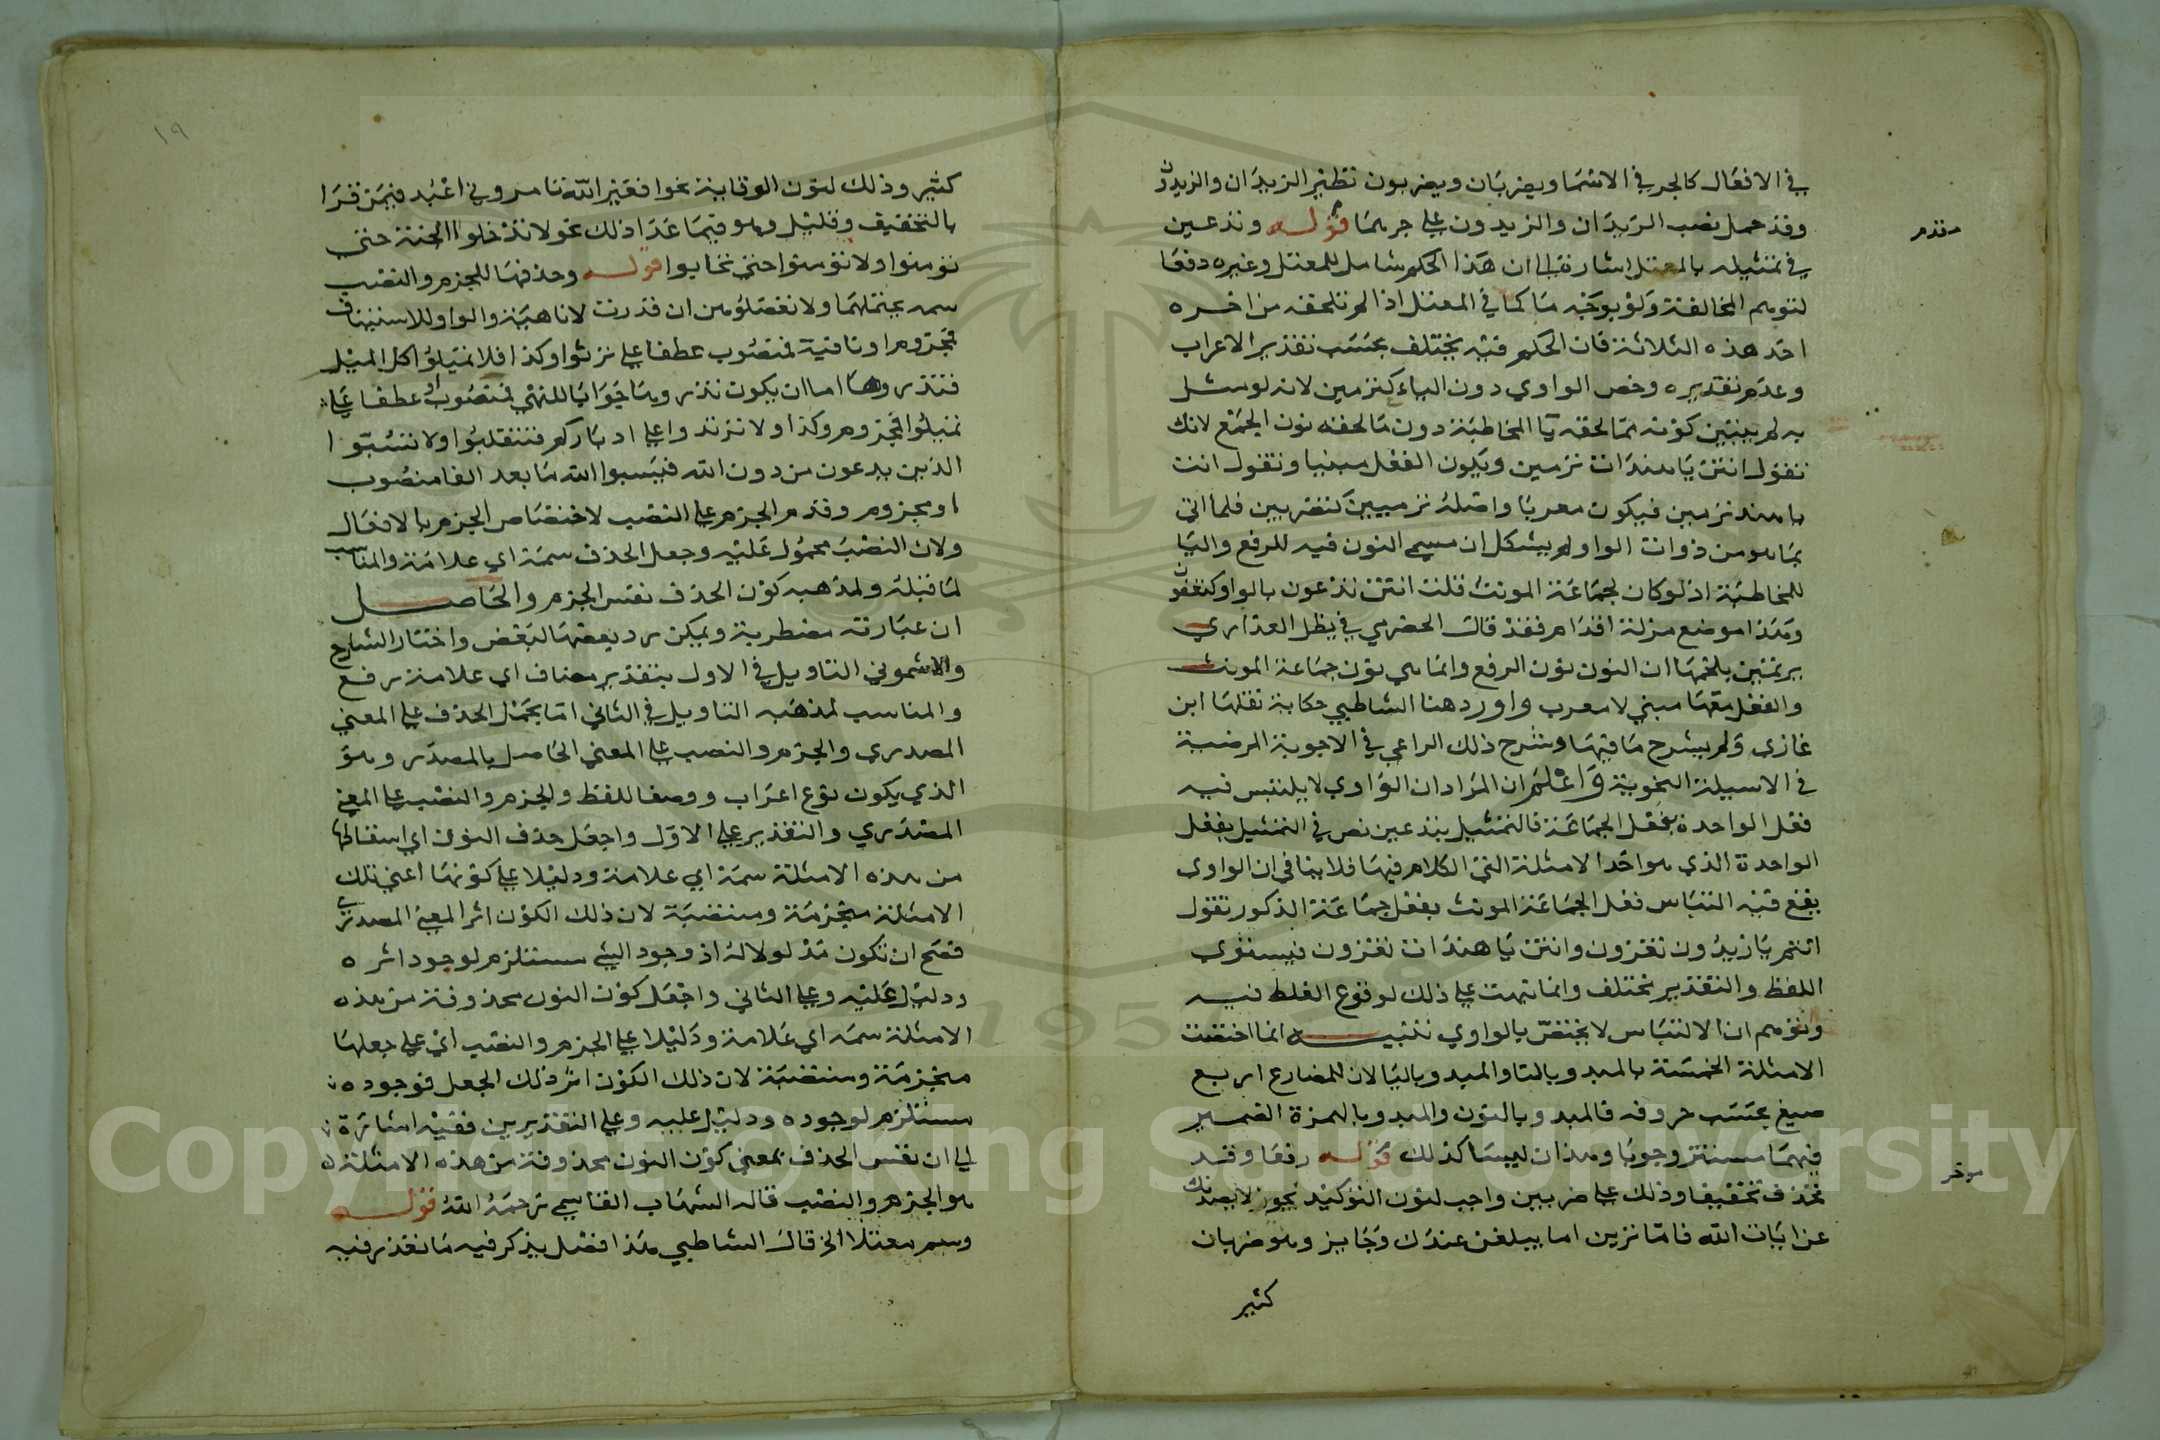 في الافعال كالجر في الاسما ويضربان ويضربون نظير الزيدان والزيدون
وقد حمل نصب الزيدان والزيدون على جرهما قوله وتدعين
في تمثيله بالمعتل اشارة الى ان هذا الحكم شامل للمعتل وغيره دفعا
لتوهم المخالفة ولو بوجه ما كما في المعتل اذا لم تلحقه من اخره
احد هذه الثلاثة فان الحكم فيه يختلف بحسب تقدير الاعراب
وعدم تقديره وخص الواوي دون الياء كترمين لانه لو مثل
به لم يتبين كونه مما لحقه يا المخاطبة دون ما لحقه نون الجمع لانك
تقول انتن يا هندات ترمين ويكون الفعل مبنيا وتقول انت
يا هند ترمين فيكون معربا واصله ترميين كتضربين فلما اتي
بما هو من ذوات الواو لم يشكل ان مسمى النون فيه للرفع واليا
للمخاطبة اذ لو كان لجماعة المونث قلت انتن تدعون بالواو كتعفون
وهذا موضع مزلة اقدام فقد قال الحضرمي في يظل العذارى
يرتمين بلحمها ان النون نون الرفع وانما هي نون جماعة المونث
والفعل معها مبني لا معرب واورد هنا الشاطبي حكاية نقلها ابن
غازي ولم يشرح ما فيها وشرح ذلك الراعي في الاجوبة المرضية
في الاسيلة النحوية واعلم ان المراد ان الواوي لا يلتبس فيه
فعل الواحدة بفعل الجماعة فالتمثيل بتدعين نص في التمثيل بفعل
الواحدة الذي هو احد الامثلة التي الكلام فيها فلا ينافي ان الواوي
يقع فيه التباس فعل الجماعة المونث بفعل جماعة الذكور تقول
انتم يا زيدون تغزون وانتن يا هندات تغزون فيستوي
اللفظ والتقدير مختلف وانما نبهت على ذلك لوقوع الغلط فيه
وتوهم ان الالتباس لا يختص بالواوي تنبيه انما اختصت
الامثلة الخمسة بالمبدو بالتا والمبدو باليا لان للمضارع اربع
صيغ بحسب حروفه فالمبدو بالنون والمبدو بالهمزة الضمير
فيهما مستتر وجوبا وهذان ليسا كذلك قوله رفعا وقد
تحذف تخفيفا وذلك على ضربين واجب لنون التوكيد نحو لا يصدنك
عن ايات الله فاما ترين اما يبلغن عندك وجايز وهو ضربان
كثير
مقدم
موخر
١٩
كثير وذلك لنون الوقاية نحو افغير الله تامروني اعبد فيمن قرا
بالتخفيف وقليل وهو فيما عدا ذلك نحو لا تدخلوا الجنة حتى
تومنوا ولا تومنوا حتى تحابوا قوله وحذفها للجزم والنصب
سمه بجملتها ولا تعضلوهن ان قدرت لا ناهية والواو للاستيناف
فمجزوم او نافية فمنصوب عطفا على ترثوا وكذا فلا تميلوا كل الميل
فتذروها اما ان يكون تذروها جوابا للنهي فمنصوب او عطفا على
تميلوا فمجزوم وكذا ولا ترتدوا على ادباركم فتنقلبوا ولا تسبوا
الذين يدعون من دون الله فيسبوا الله ما بعد الفا منصوب
او مجزوم وقدم الجزم على النصب لاختصاص الجزم بالافعال
ولان النصب محمول عليه وجعل الحذف سمة اي علامة والمناسب
لما قبله ولمذهبه كون الحذف نفس الجزم والحاصل
ان عبارته مضطربة ويمكن رد بعضها لبعض واختار الشارح
والاشموني التاويل في الاول بتقدير مضاف اي علامة رفع
والمناسب لمذهبه التاويل في الثاني اما بحمل الحذف على المعنى
المصدري والجزم والنصب على المعنى الحاصل بالمصدر وهو
الذي يكون نوع اعراب ووصفا للفظ والجزم والنصب على المعنى
المصدري والتقدير على الاول واجعل حذف النون اي اسقاطها
من هذه الامثلة سمة اي علامة ودليلا على كونها اعني تلك
الامثلة منجزمة ومنتصبة لان ذلك الكون اثر المعنى المصدري
فصح ان تكون مدلولا له اذ وجود الشي مستلزم لوجود اثره
ودليل عليه وعلى الثاني واجعل كون النون محذوفة من هذه
الامثلة سمه اي علامة ودليلا على الجزم والنصب اي على جعلها
منجزمة ومنتصبة لان ذلك الكون اثر ذلك الجعل فوجوده
مستلزم لوجوده ودليل عليه وعلى التقديرين ففيه اشارة
الى ان نفس الحذف بمعنى كون النون محذوفة من هذه الامثلة
هو الجزم والنصب قاله الشهاب القاسمي رحمه الله قوله
وسم معتلا الخ قال الشاطبي هذا فصل يذكر فيه ما تقدر فيه
Copyright © King Saud University
1957